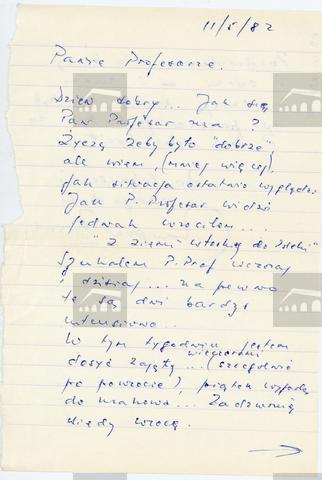 11/5/82
Panie Profesorze.
Dzień dobry... Jak się
Pan Profesor ma?
Życzę żeby było "dobrze",
ale wiem, (mniej więcej)
jak situacja ostatnio wygląda
Jak P. Profesor widzi
jednak wróciłem...
"Z Ziemi włoskiej do Polski"
Szukałem P. Prof wczoraj
i dzisiaj... na pewno
te są dni bardzo
intensywne..
W tym tygodniu jestem
dosyć zajęty wieczorami... (szczególnie
po powrocie), piątek
do Krakowa... Zadzwonię
kiedy wrocę.